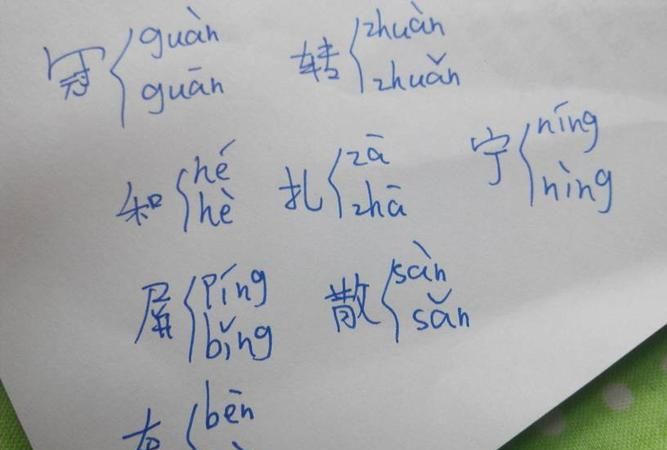 冠 guàn 转 zhuàn
guān zhuǎn
和 hé 扎 zā 宁 níng
hè zhā nìng
屏 píng 散 sàn
bǐng sǎn
bèn